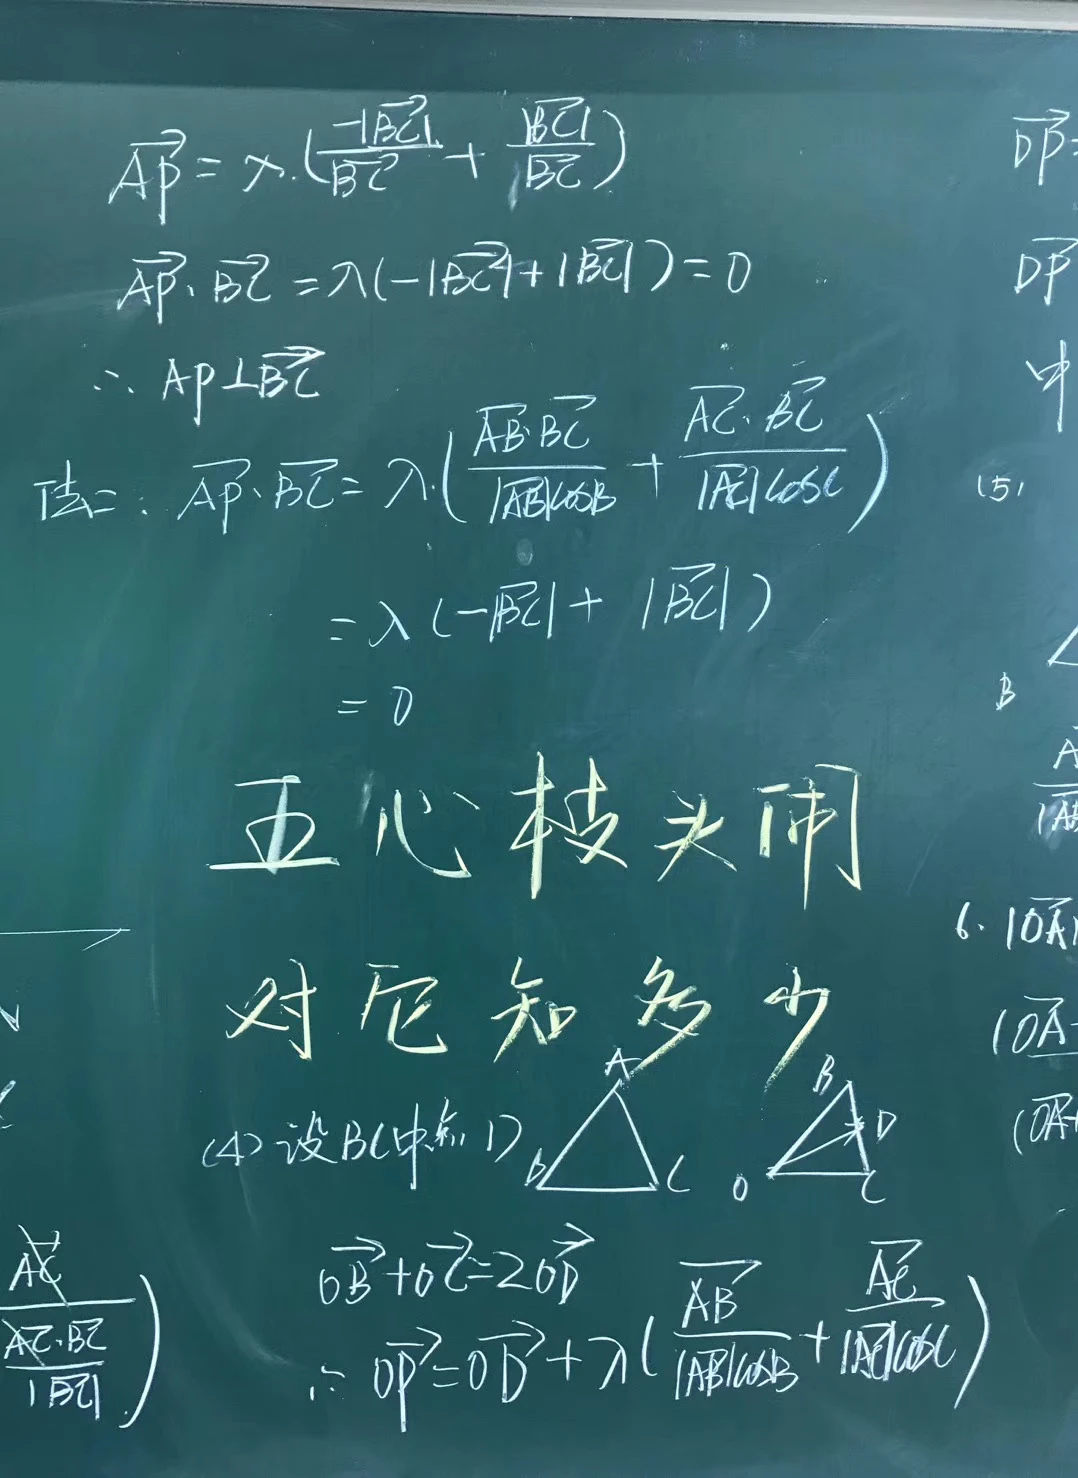 AP = λ·(-|BC|/BC + |BC|/BC)
AP·BC = λ(-|BC|+|BC|) = 0
∴ AP⊥BC
法二: AP·BC = λ·(AB·BC/|AB|cosB + AC·BC/|AC|cosC)
= λ(-|BC| + |BC|)
= 0
五心枝头闹
对厄知多少
(4) 设BC中点D
A
B
C
B
D
O
C
OB+OC=2OD
∴ OP=OD+λ(AB/|AB|cosB + AC/|AC|cosC)
AC
AC·BC
|BC|
)
DP=
DP
中
(5)
B
A
|AB
6. |OA|
(OA-
(OA+